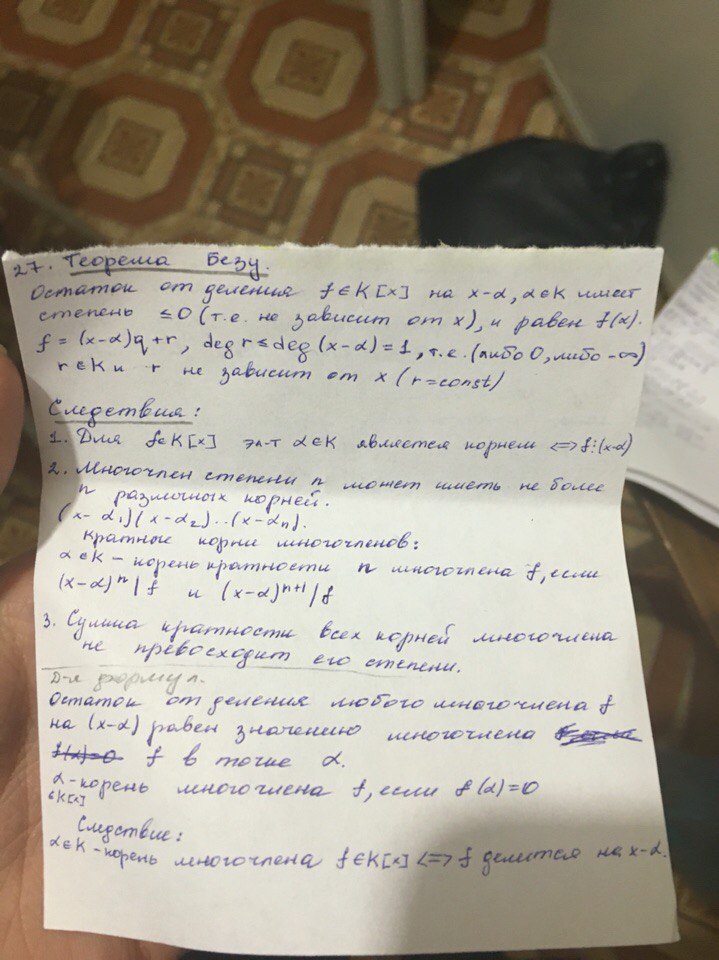 27. Теорема Безу.
Остаток от деления f∈K[x] на x-α, α∈K имеет
степень ≤0 (т.е. не зависит от x), и равен f(α).
f = (x-α)q+r, deg r ≤ deg (x-α) = 1, т.е. (либо 0, либо -∞)
r∈K и r не зависит от x (r=const)
Следствия:
1. Для f∈K[x] эл-т α∈K является корнем ⟺ f⋮(x-α)
2. Многочлен степени n может иметь не более
n различных корней.
(x-α₁)(x-α₂)..(x-αₙ).
Кратные корни многочленов:
α∈K – корень кратности n многочлена f, если
(x-α)ⁿ | f и (x-α)ⁿ⁺¹ ∤ f
3. Сумма кратности всех корней многочлена
не превосходит его степени.
Д-я формул.
Остаток от деления любого многочлена f
на (x-α) равен значению многочлена
f(α)=0 f в точке α.
α-корень многочлена f, если f(α)=0
∈K[x]
Следствие:
α∈K – корень многочлена f∈K[x] <=> f делится на x-α.